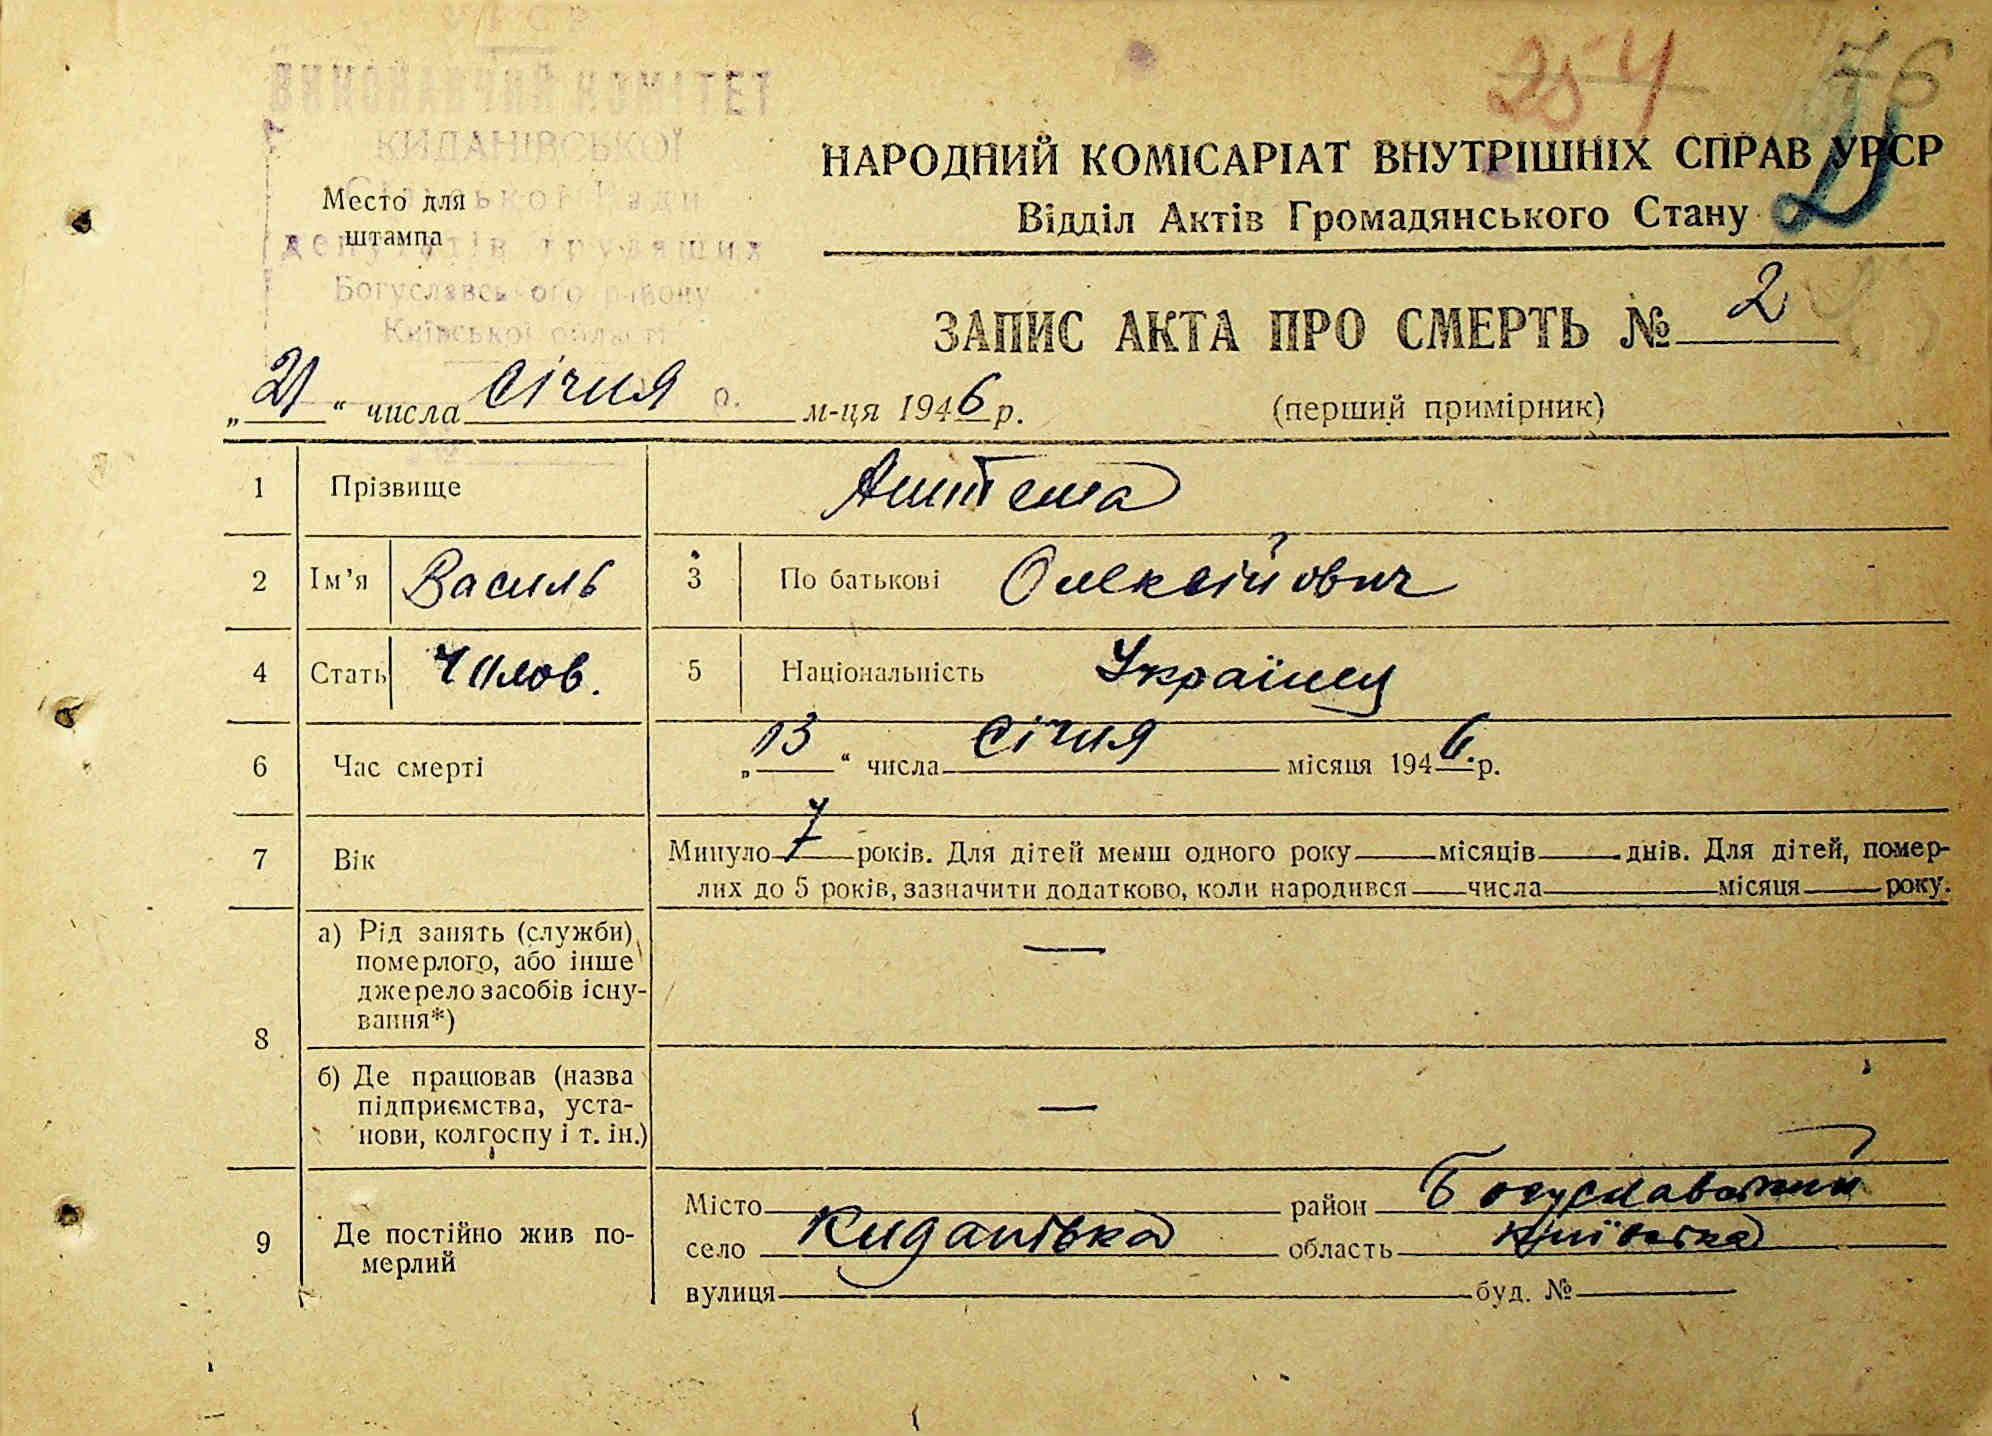 ВИКОНАВЧИЙ КОМІТЕТ
КИДАНІВСЬКОЇ
Сільської Ради
депутатів трудящих
Богуславського району
Київської області
Место для
штампа
254
76
НАРОДНИЙ КОМІСАРІАТ ВНУТРІШНІХ СПРАВ УРСР
Відділ Актів Громадянського Стану
ЗАПИС АКТА ПРО СМЕРТЬ № 2
„21“ числа січня м-ця 1946 р.
(перший примірник)
1 Прізвище
2 Ім’я Василь 3 По батькові Олексійович
4 Стать Чолов. 5 Національність Українец
6 Час смерті „13“ числа січня місяця 1946. р.
7 Вік Минуло 7 років. Для дітей менш одного року місяців днів. Для дітей, помер-
лих до 5 років, зазначити додатково, коли народився числа місяця року.
8 а) Рід занять (служби)
померлого, або інше
джерело засобів існу-
вання*) —
б) Де працював (назва
підприємства, уста-
нови, колгоспу і т. ін.) —
9 Де постійно жив по-
мерлий
Місто район Богуславський
село Киданівка область Київська
вулиця буд. №